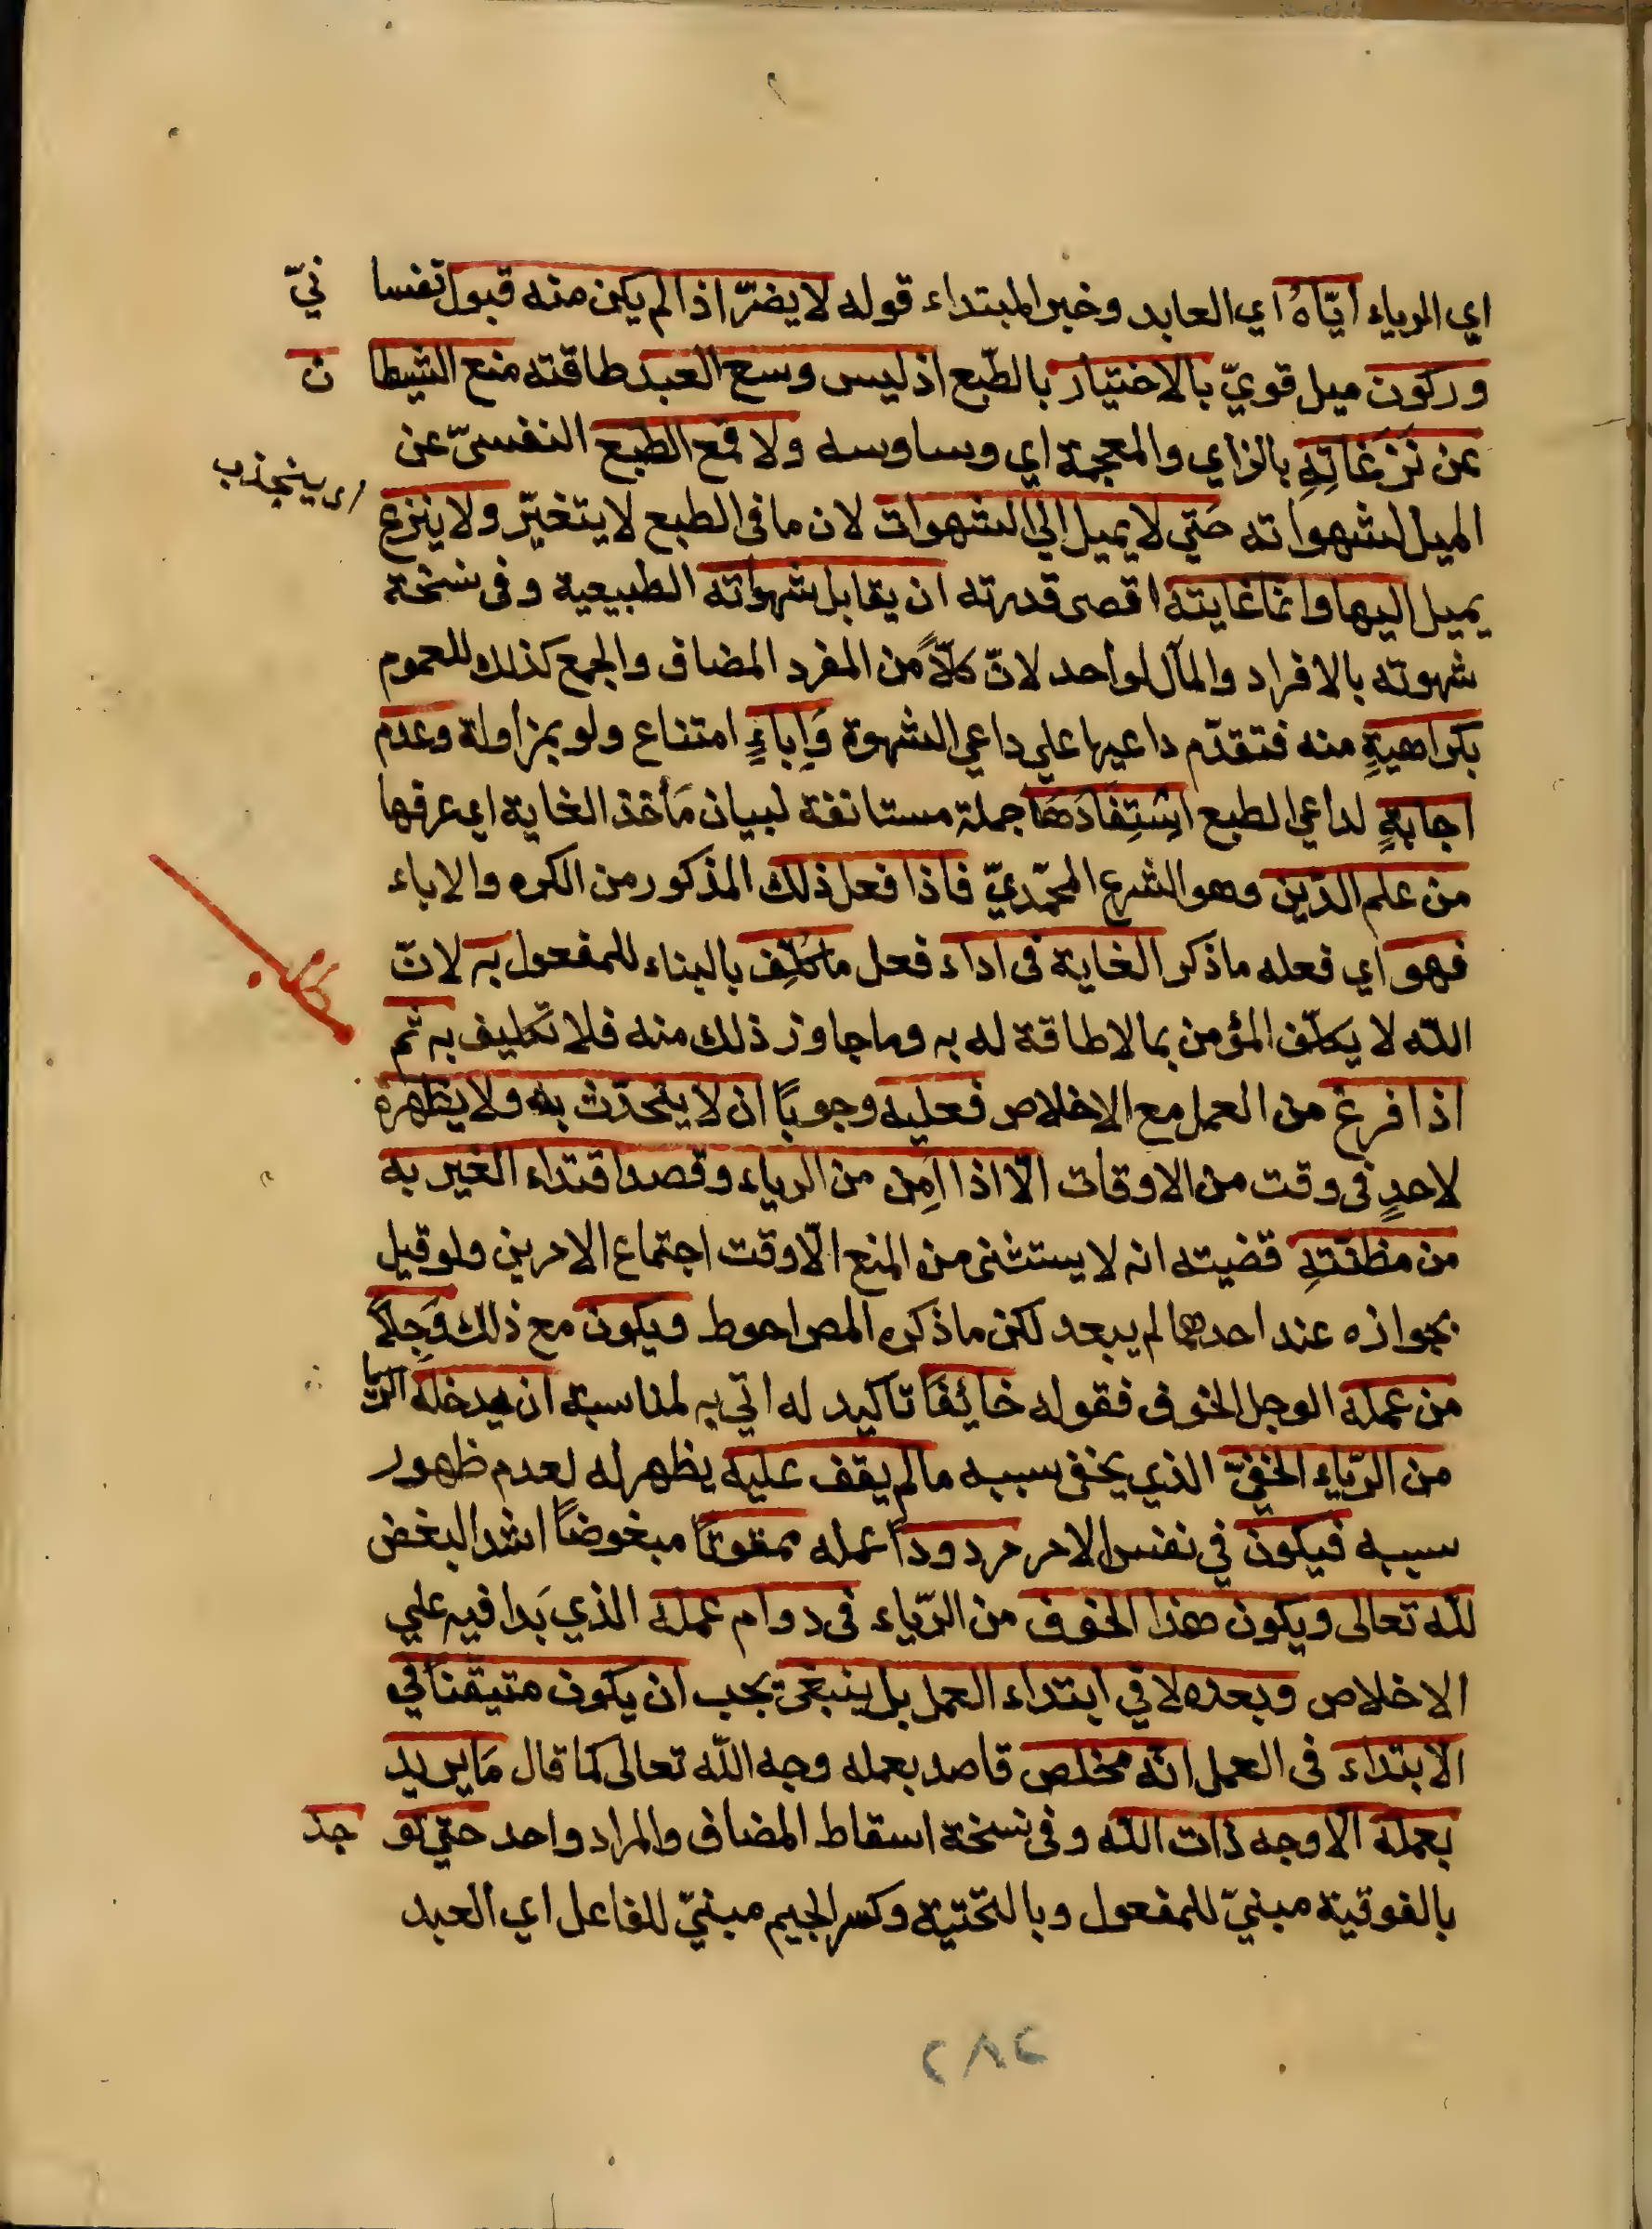 اي الرياء ايّاه اي العابد وخبر المبتداء قوله لا يضرّ اذا لم يكن منه قبول نفسا نيّ
وركون ميل قويّ بالاختيار بالطّبع اذ ليس وسع العبد طاقته منع الشيطا ن
عن نَزَغَاتِهِ بالزاي والمعجمة اي وساوسه ولا قمع الطبع النفسىّ عن
الميل لشهواته حَتي لا يميل الي الشهوات لان ما فى الطبع لا يتغيّر ولا ينزع
اي ينجذب
يميل اليها وانما غايته اقصى قدرته ان يقابل شهواته الطبيعية وفى نسخة
شهوته بالافراد والمآل واحد لانّ كلّاً من المفرد المضاف والجمع كذلك للعموم
بكراهيةٍ منه فتقدّم داعيها علي داعي الشهوة وَاِباءٍ امتناع ولو بمزاولة وعدم
اجابةٍ لداعي الطبع اسْتِفَادَهَا جملة مستانفة لبيان مَأخذ الغاية اي عرفها
من علم الدّين وهو الشرع المحمّديّ فاذا فعل ذلك المذكور من الكره والاباء
فهو اي فعله ما ذكر الغاية فى اداء فعل ما كُلِّف بالبناء للمفعول به لانّ
اللّه لا يكلّف المؤمن بما لا طاقة له به وما جاوز ذلك منه فلا تكليف به ثم
اذا فرغ من العمل مع الاخلاص فعليه وجوبًا ان لا يتحدّث به ولا يظهره
لاحدٍ فى وقت من الاوقات الّا اذا اَمِن من الرياء وقصد اقتداء الغير به
من مظنّتهِ قضيته انه لا يستثنى من المنع الّا وقت اجتماع الامرين ولو قيل
بجوازه عند احدهما لم يبعد لكن ما ذكره المص احوط ويكون مع ذلك وَجِلاً
من عمله الوجل الخوف فقوله خائِفًا تاكيد له اتي به لمناسبة ان يدخله الريا
من الرّياء الخفيّ الذي يخفى سببه ما لم يقف عليه يظهر له لعدم ظهور
سببه فيكون في نفس الامر مردوداً عمله ممقوتًا مبغوضاً اشد البغض
للّه تعالى ويكون هذا الخوف من الرّياء فى دوام عمله الذي بَدا فيه علي
الاخلاص وبعده لا في ابتداء العمل بل ينبغى يجب ان يكون متيقّناً في
الابتداء فى العمل انّه مخلص قاصد بعمله وجه اللّه تعالى كما قال مَا يريد
بعمله الا وجه ذات اللّه وفى نسخة اسقاط المضاف والمراد واحد حتي تو جد
بالفوقية مبنيّ للمفعول وبالتحتية وكسر الجيم مبنيّ للفاعل اي العبد
٢٨٢